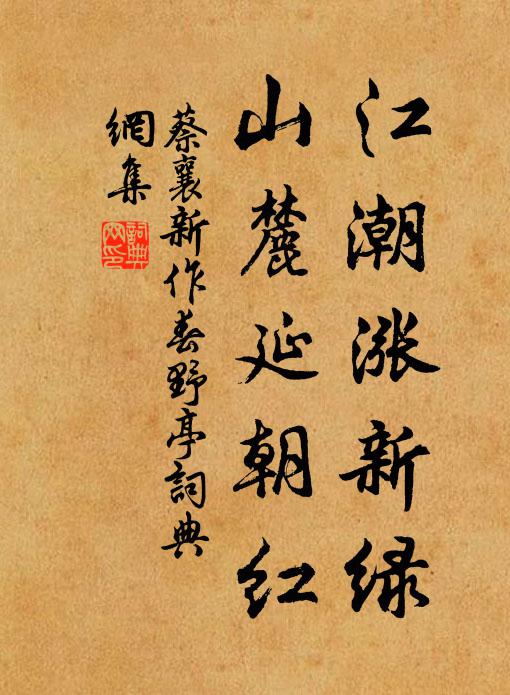 江潮涨新绿
山麓延朝红
蔡襄新作春野亭词典
網集
詞典網印